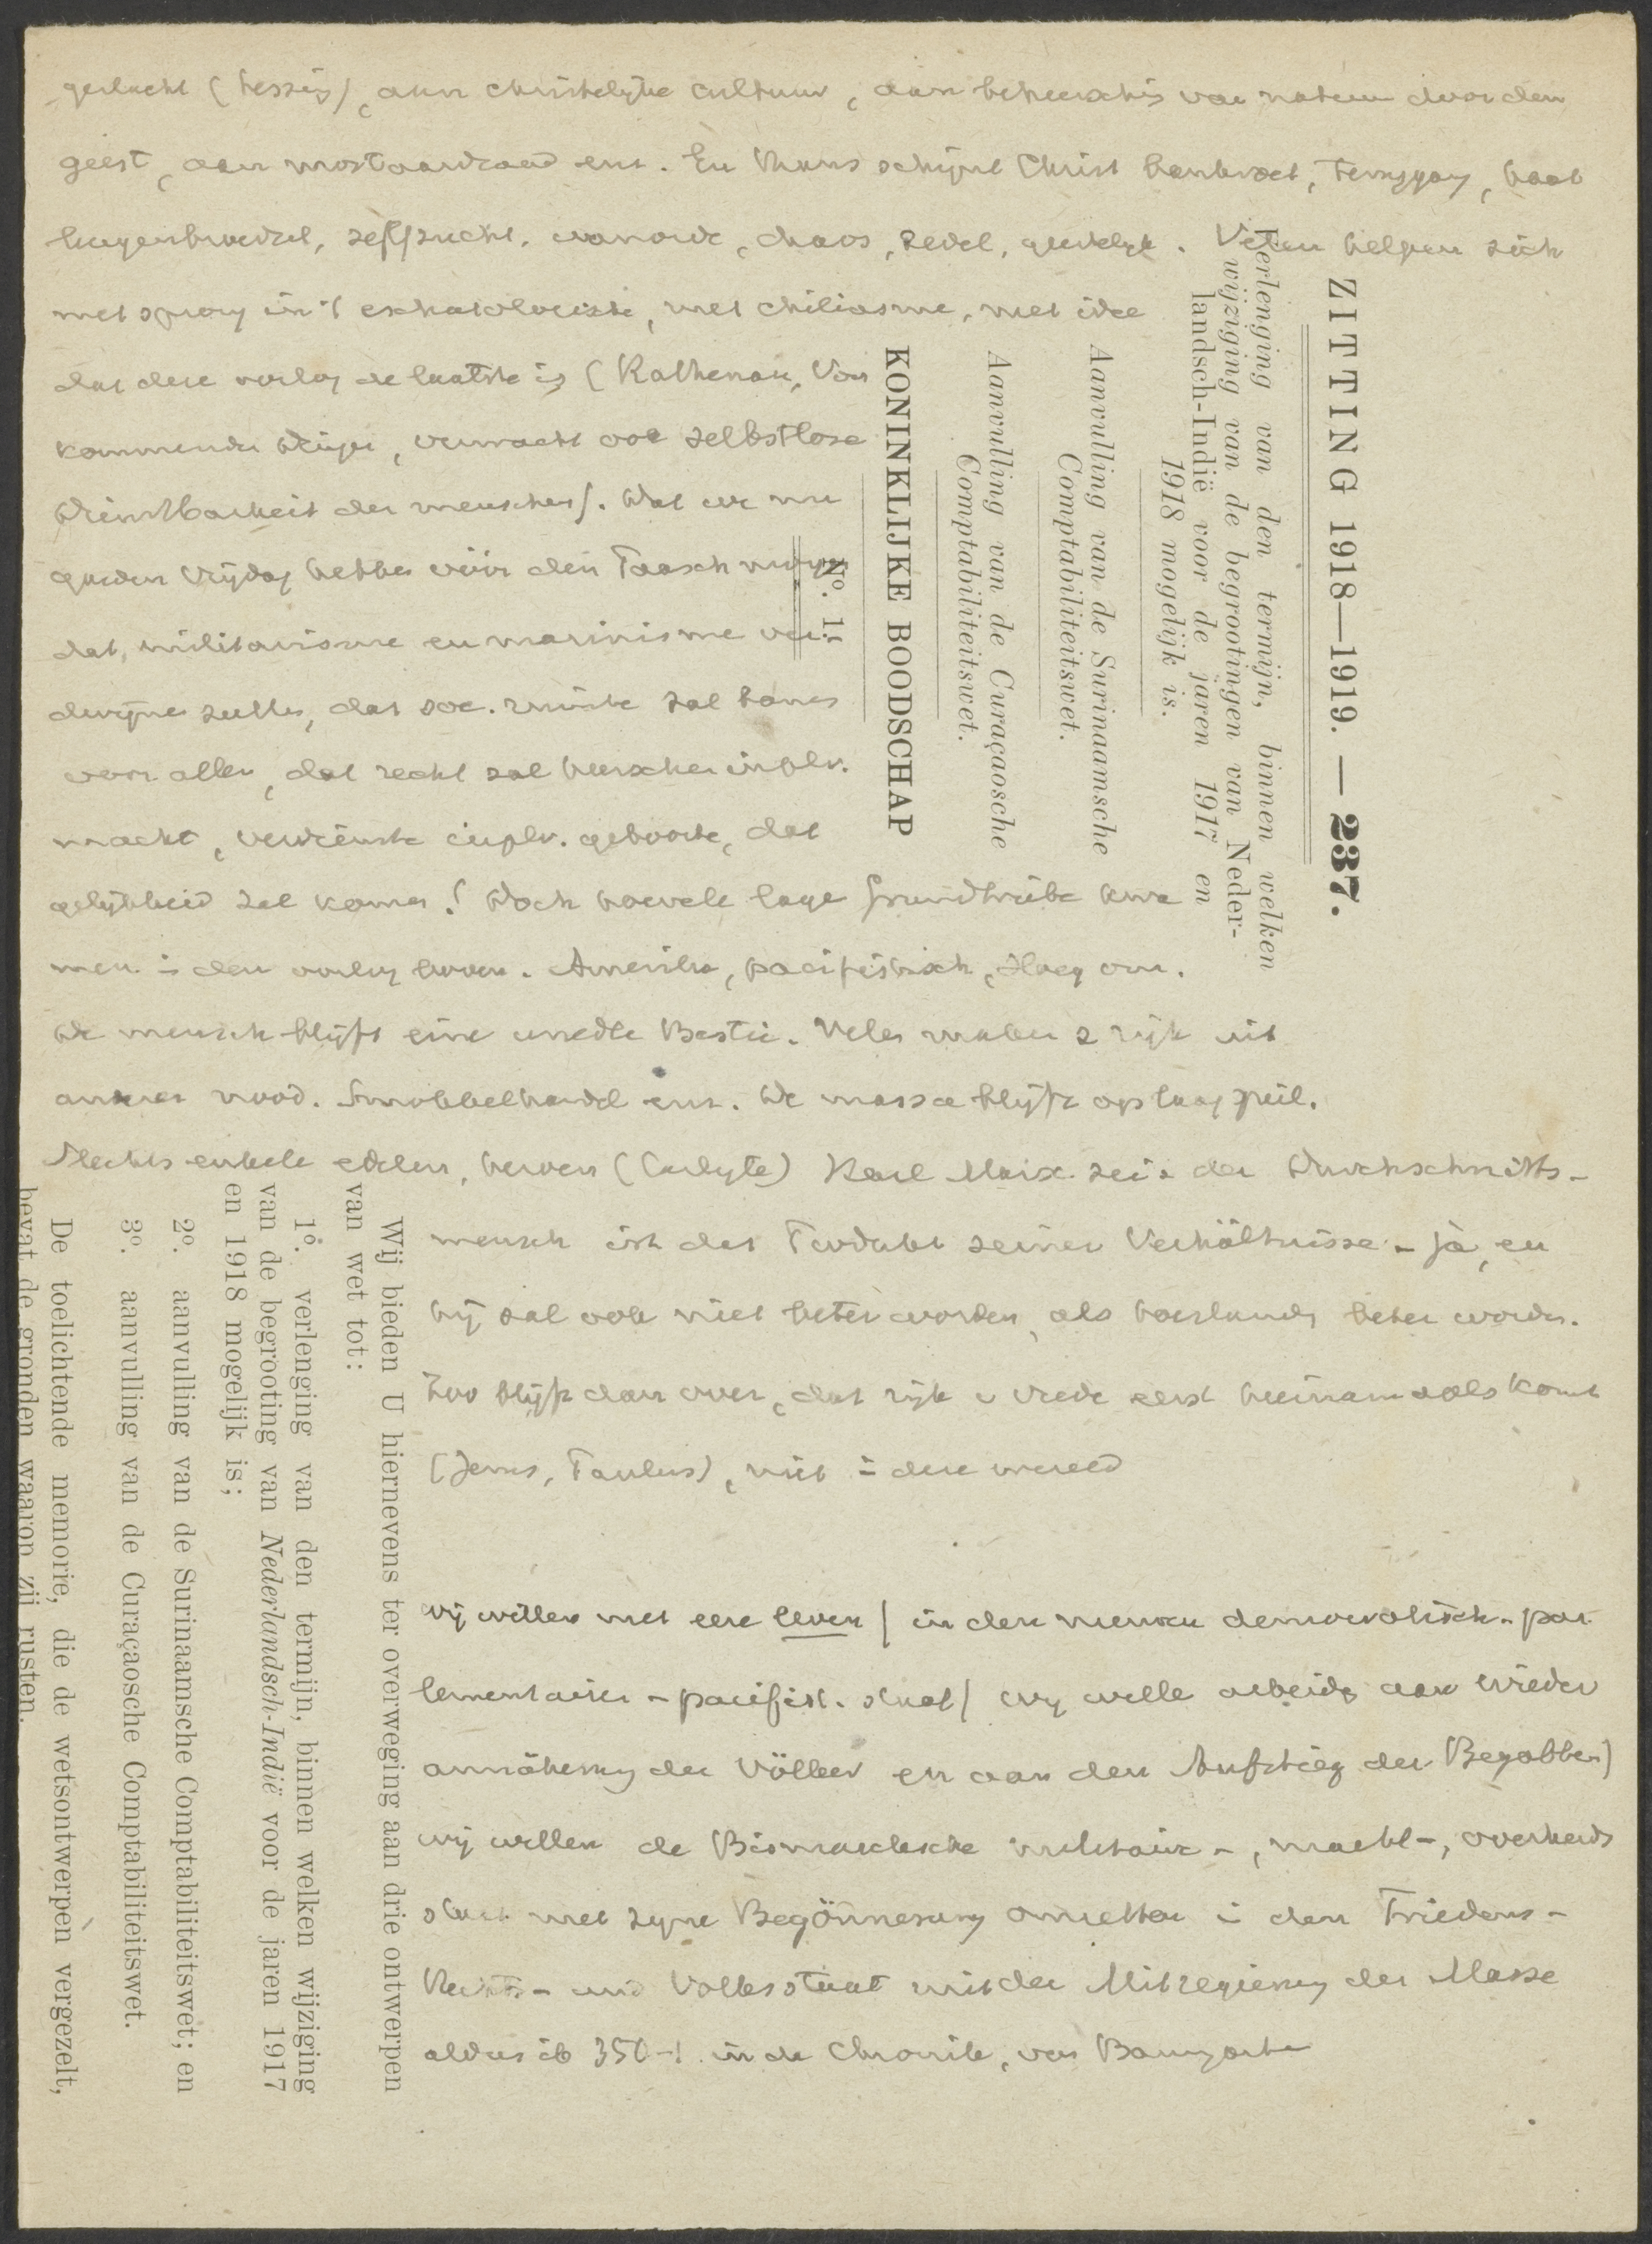 gedacht (Lessing), aan christelijke cultuur, aan beheersching van natuur door den
geest, aan mostaardzaad enz. En thans schijnt Christ bankroet, teruggang, haat
leugenbroedsel, zelfzucht, wanorde, chaos, zedel. Velen helpen zich
met sprong in 't eschatologische, met chiliasme, met idee
dat deze oorlog de laatste is (Rathenau, Von
kommenden Dingen, verwacht ook selbstlose
Dienstbarkeit der menschen). Wat we nu
goeden Vrijdag hebben vóór den Paasch morgen
dat, militarisme en marinisme ver-
dwijnen zullen, dat soc. ruimte zal komen
voor allen, dat recht zal heerschen in plv.
macht, verdienste in plv. geboorte, dat
gelijkheid zal komen! Doch hoevele lage Grundtriebe kwa
men in den oorlog boven. Amerika, pacifistisch, sloeg om.
De mensch blijft eine unedle Bestie. Velen maken z. rijk uit
anderer nood. Smokkelhandel enz. De massa blijft op laag peil.
Slechts enkele edelen, heroen (Carlyle) Karl Marx zei: der Durchschnitts-
mensch ist das Produkt seiner Verhältnisse – ja, en
hij zal ook niet beter worden, als toestanden beter worden.
Zoo blijft dan over, dat rijk v vrede eerst hiernamaals komt
(Jezus, Paulus), niet in deze wereld
wij willen met eere leven (in den nieuwen democratisch-par
lementairen-pacifist. staat) wij willen arbeiden aan Wieder
annäherung der Völker en aan den Aufstieg der Begabten)
wij willen de Bismarcksche militair-, macht-, overheids
staat met zijne Begönnerung omzetten in den Friedens-
Rechts- und Volksstaat mit der Mitregierung der Masse
aldus ib 350-1 in de Chronik, van Baumgarten
ZITTING 1918—1919. — 237.
Verlenging van den termijn, binnen welken
wijziging van de begrootingen van Neder-
landsch-Indië voor de jaren 1917 en
1918 mogelijk is.
Aanvulling van de Surinaamsche
Comptabiliteitswet.
Aanvulling van de Curaçaosche
Comptabiliteitswet.
KONINKLIJKE BOODSCHAP
N°. 1.
Wij bieden U hiernevens ter overweging aan drie ontwerpen
van wet tot:
1°. verlenging van den termijn, binnen welken wijziging
van de begrooting van Nederlandsch-Indië voor de jaren 1917
en 1918 mogelijk is;
2°. aanvulling van de Surinaamsche Comptabiliteitswet; en
3°. aanvulling van de Curaçaosche Comptabiliteitswet.
De toelichtende memorie, die de wetsontwerpen vergezelt,
bevat de gronden waarop zij rusten.